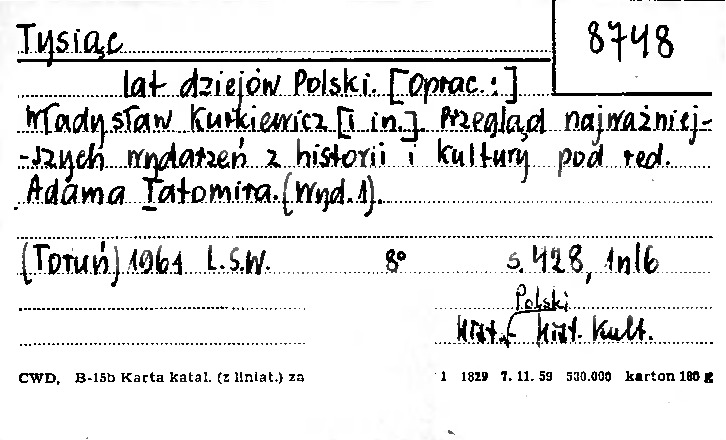 Tysiąc
8748
lat dziejów Polski. [Oprac.:]
Władysław Kurkiewicz [i in.]. Przegląd najważniej-
-szych wydarzeń z historii i kultury pod red.
Adama Tatomira. (Wyd. 1).
(Toruń) 1961 L.S.W. 8° s. 428, 1nlb
Polski
Hist. - Hist. Kult.
CWD, B-15b Karta katal. (z liniat.) za 1 1829 7.11.59 530.000 karton 180 g